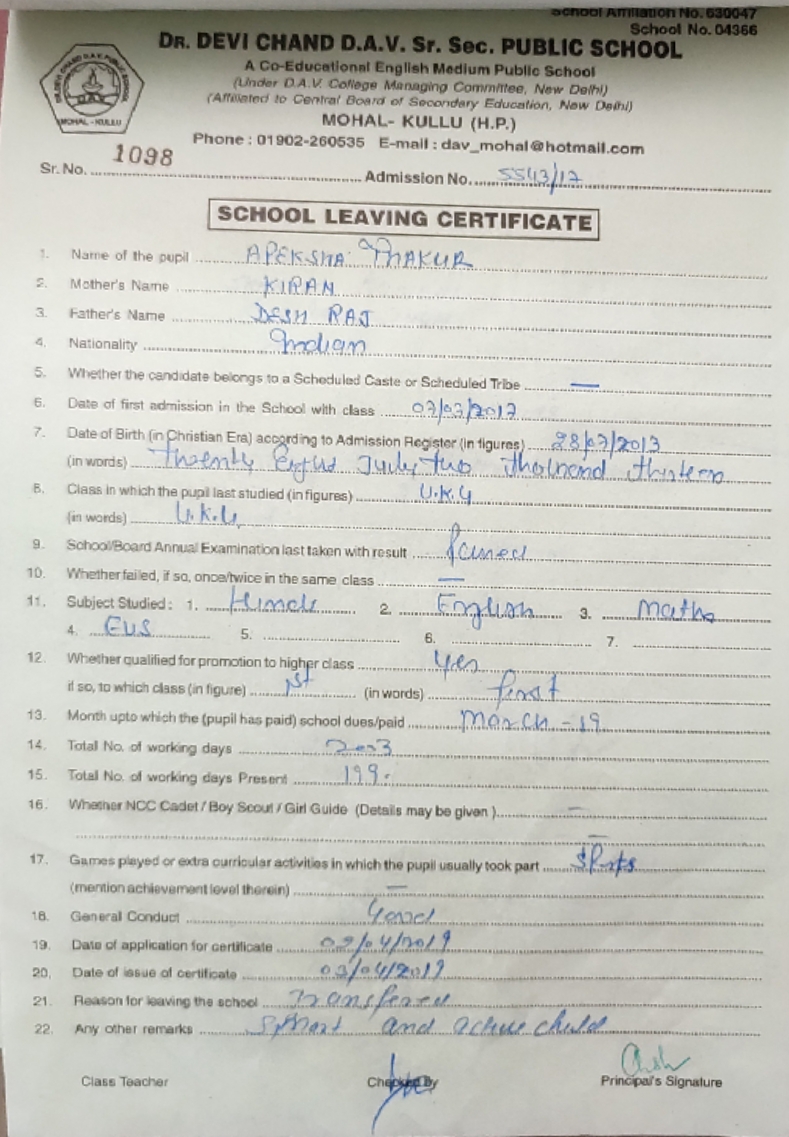 School Affiliation No. 630047
School No. 04366
DR. DEVI CHAND D.A.V. Sr. Sec. PUBLIC SCHOOL
A Co-Educational English Medium Public School
(Under D.A.V. College Managing Committee, New Delhi)
(Affiliated to Central Board of Secondary Education, New Delhi)
MOHAL - KULLU
MOHAL- KULLU (H.P.)
Phone : 01902-260535 E-mail : dav_mohal@hotmail.com
Sr. No. 1098 Admission No. 5543/17
SCHOOL LEAVING CERTIFICATE
1. Name of the pupil APEKSHA THAKUR
2. Mother's Name KIRAN
3. Father's Name DESH RAJ
4. Nationality Indian
5. Whether the candidate belongs to a Scheduled Caste or Scheduled Tribe —
6. Date of first admission in the School with class 07/03/2017
7. Date of Birth (in Christian Era) according to Admission Register (in figures) 28/07/2013
(in words) Twenty July two thousand thirteen
8. Class in which the pupil last studied (in figures) U.K.G
(in words) U.K.G
9. School/Board Annual Examination last taken with result Passed
10. Whether failed, if so, once/twice in the same class —
11. Subject Studied : 1. Hindi 2. English 3. Maths
4. EVS 5. 6. 7.
12. Whether qualified for promotion to higher class Yes
if so, to which class (in figure) 1st (in words) first
13. Month upto which the (pupil has paid) school dues/paid March - 19
14. Total No. of working days 203
15. Total No. of working days Present 199.
16. Whether NCC Cadet / Boy Scout / Girl Guide (Details may be given ) —
—
17. Games played or extra curricular activities in which the pupil usually took part Sports
(mention achievement level therein) —
18. General Conduct Good
19. Date of application for certificate 02/04/2019
20. Date of issue of certificate 03/04/2019
21. Reason for leaving the school Transfered
22. Any other remarks Smart and active child
Class Teacher Checked By Principal's Signature